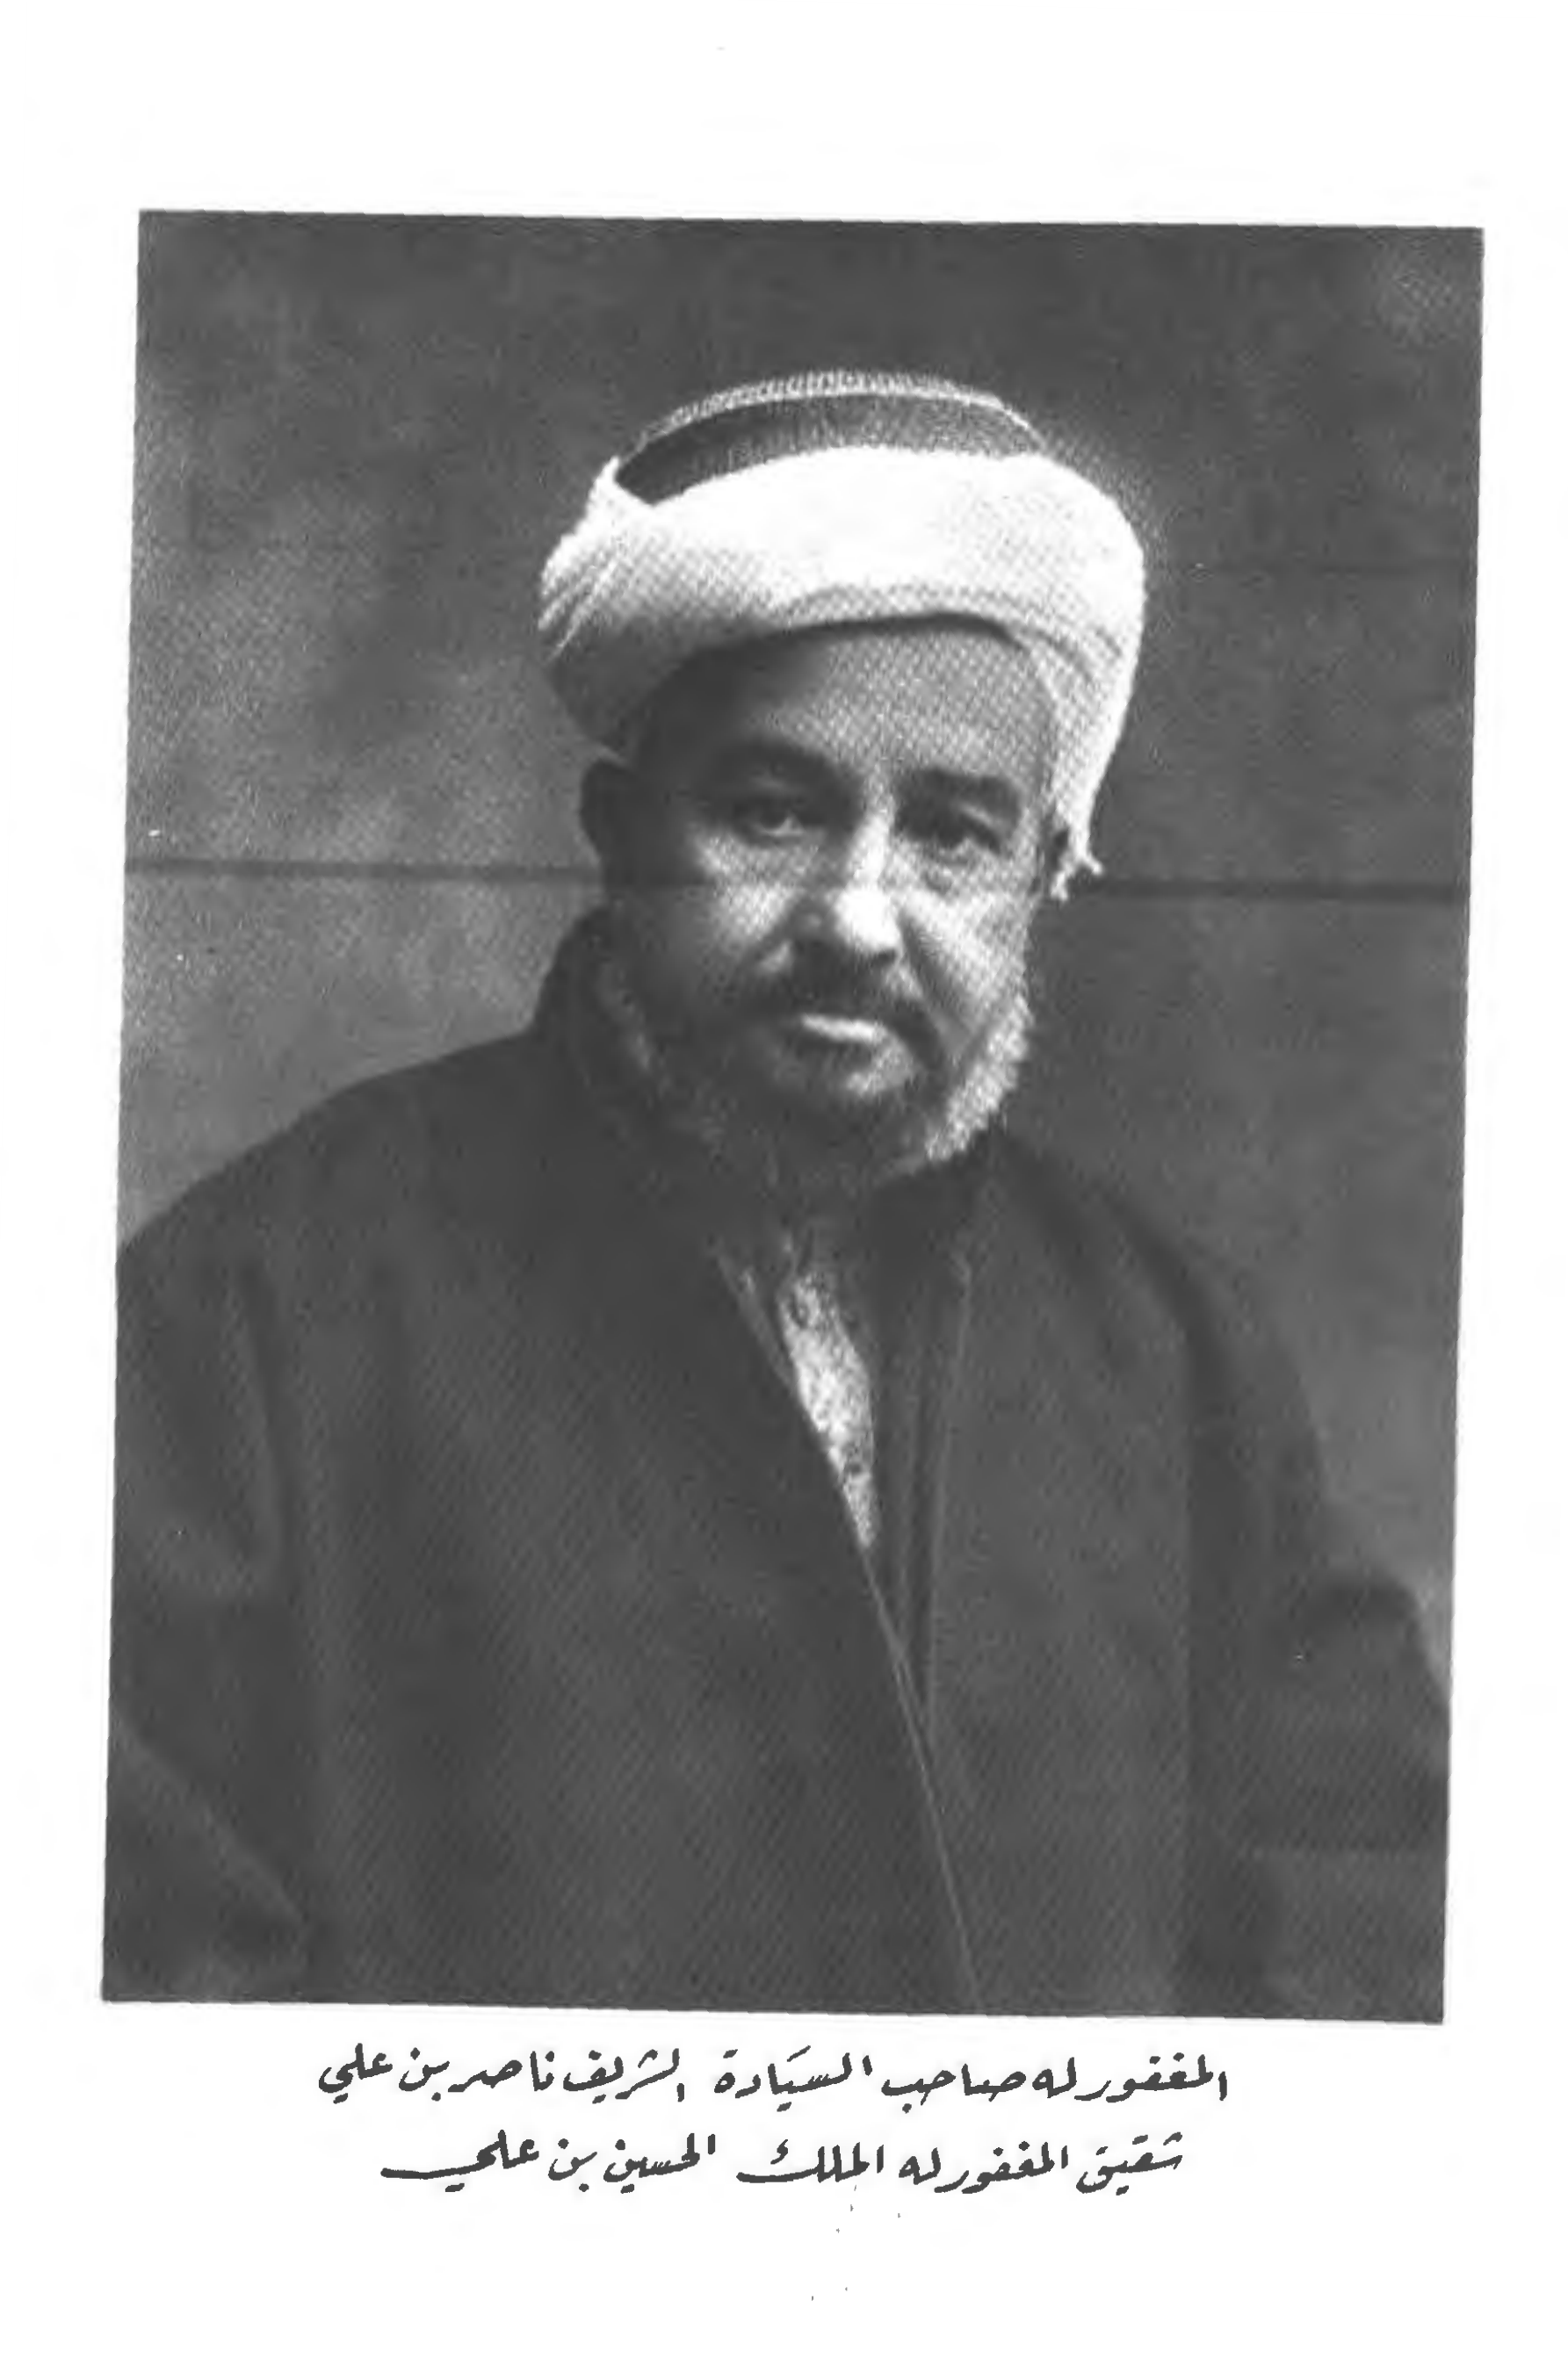 المغفور له صاحب السيَادة الشريف ناصر بن علي
شقيق المغفور له الملك الحسين بن علي